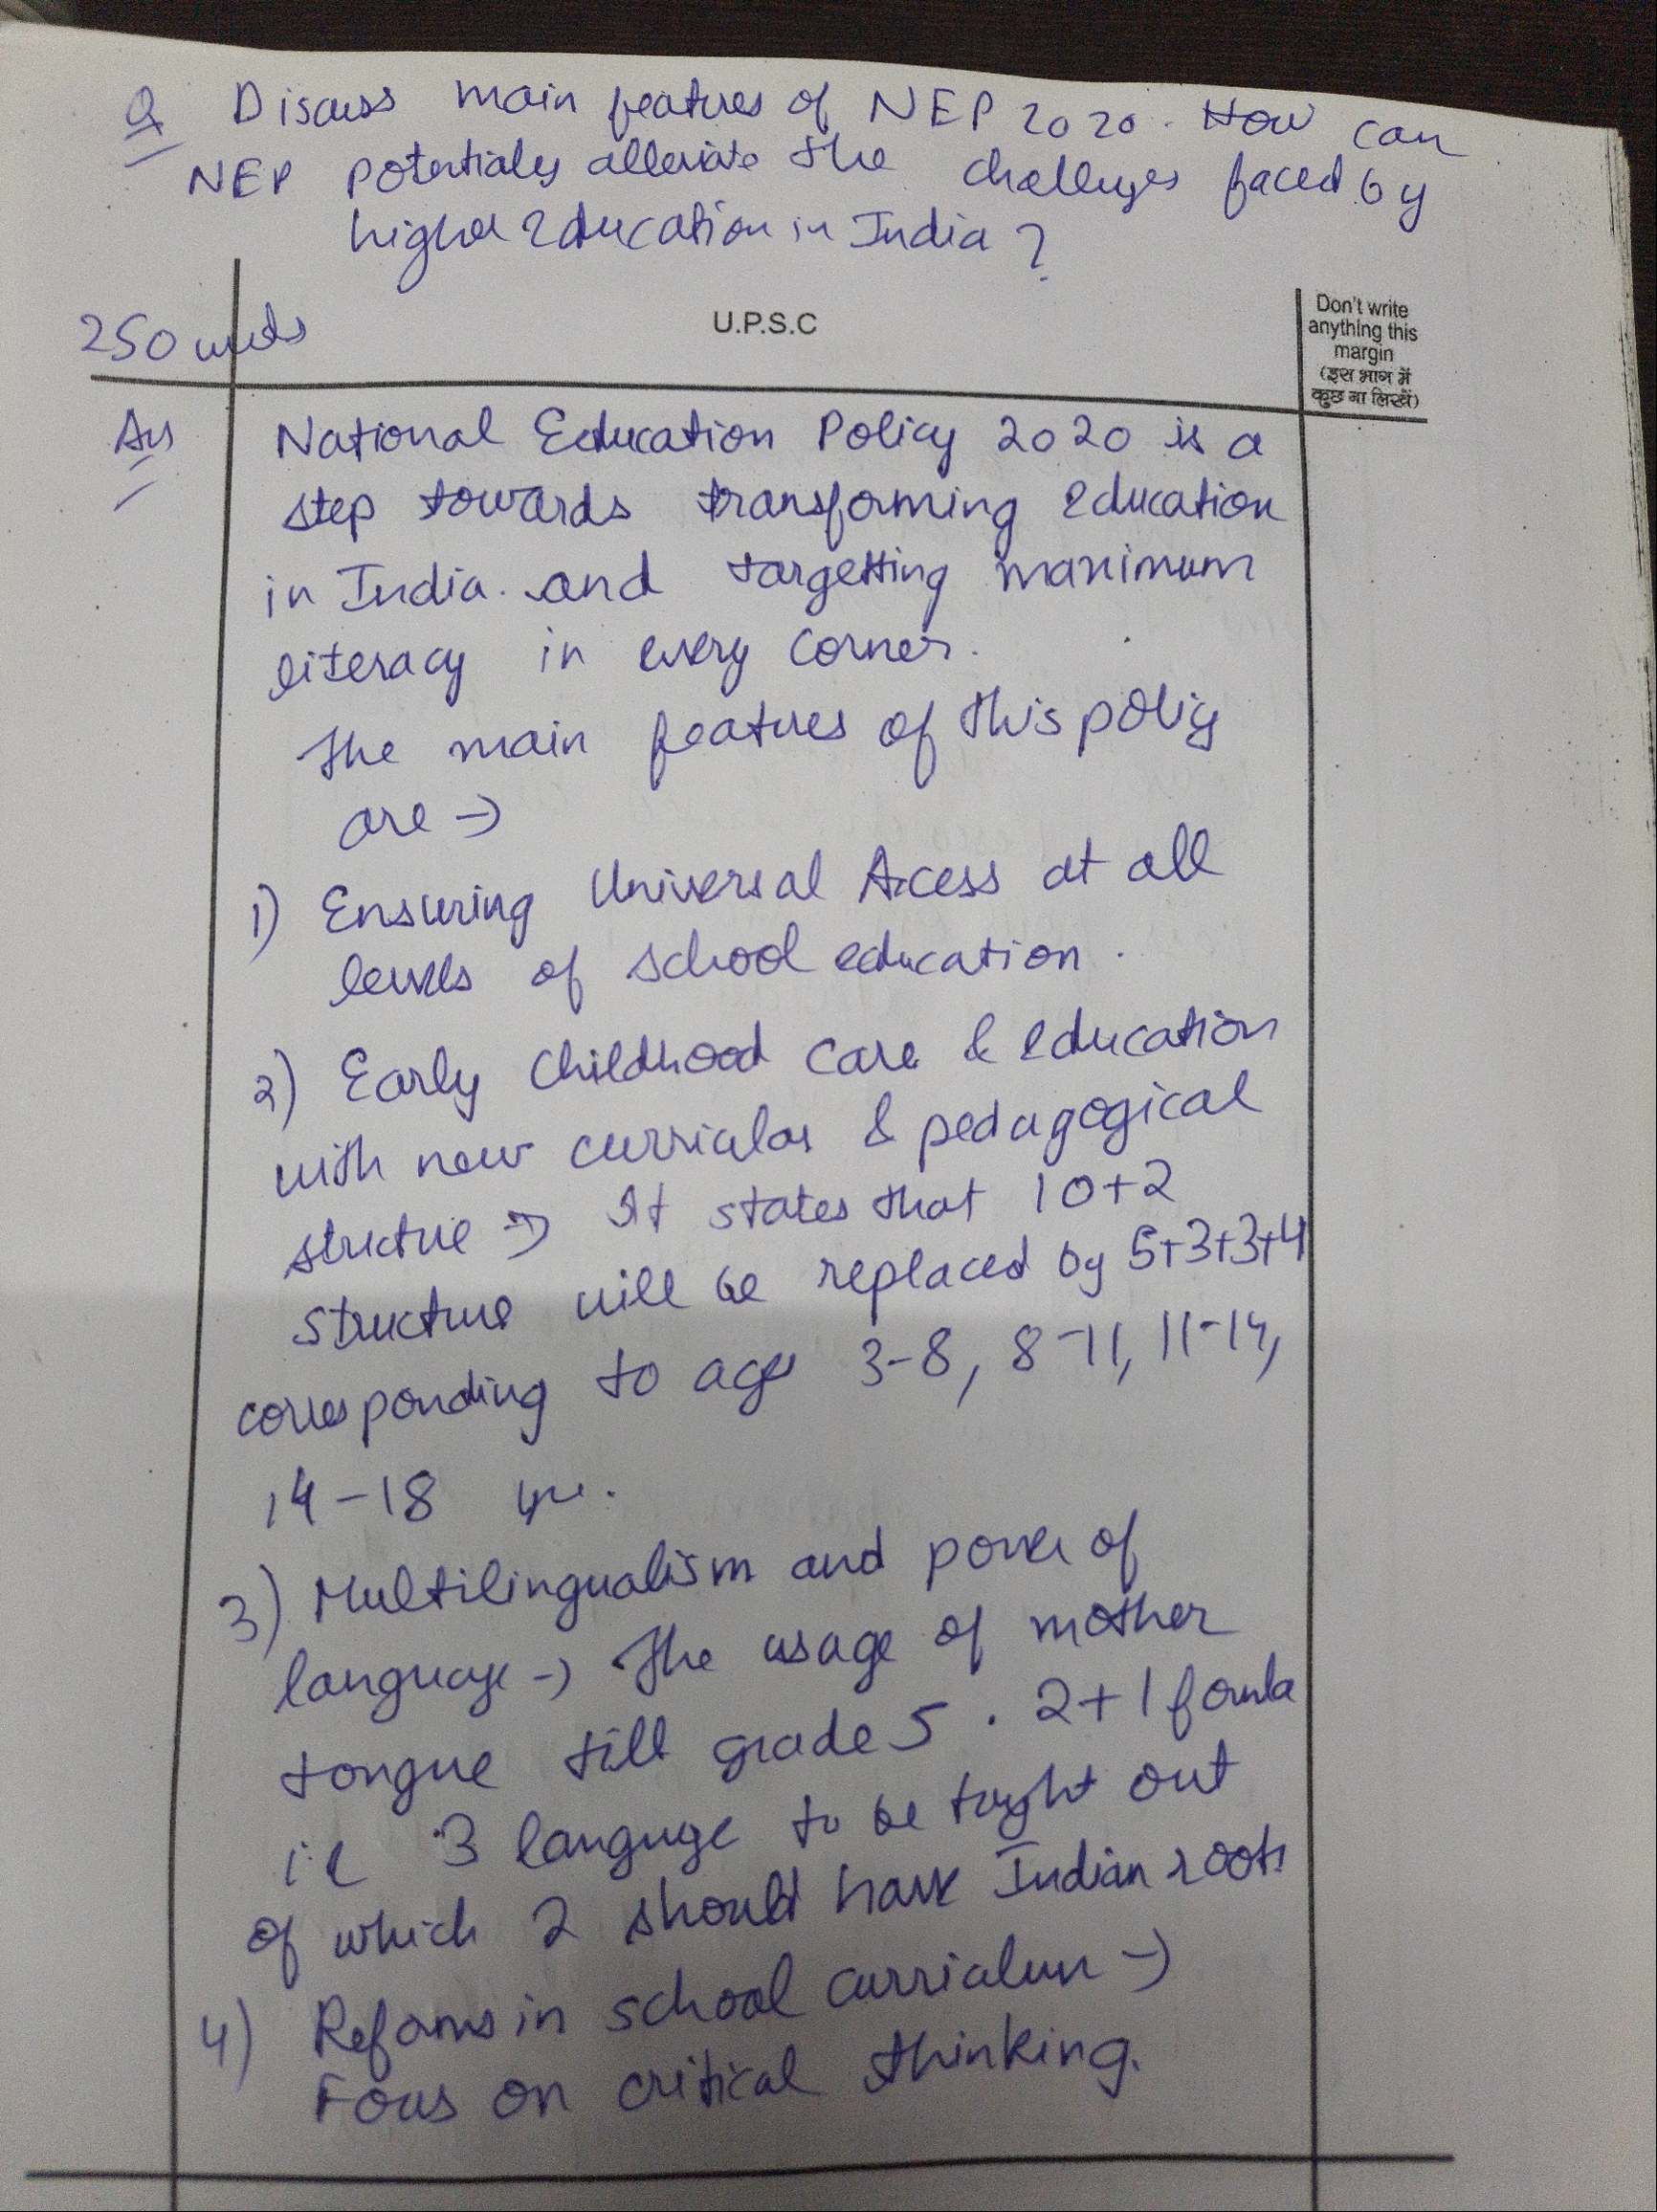 Q Discuss main features of NEP 2020. How can
NEP potentialy alleviate the challenges faced by
higher Education in India ?
250 words
U.P.S.C
Don't write
anything this
margin
(इस भाग में
कुछ ना लिखें)
Ans National Education Policy 2020 is a
step towards transforming education
in India. and targetting maximum
literacy in every corner.
The main features of this policy
are →
1) Ensuring Universal Access at all
levels of school education.
2) Early Childhood Care & education
with new curricular & pedagogical
structure ⇒ It states that 10+2
structure will be replaced by 5+3+3+4
corresponding to ages 3-8, 8-11, 11-14,
14-18 yrs.
3) Multilingualism and power of
language → The usage of mother
tongue till grade 5. 2+1 formula
i.e 3 language to be taught out
of which 2 should have Indian roots
4) Reforms in school curriculum →
Focus on critical thinking.